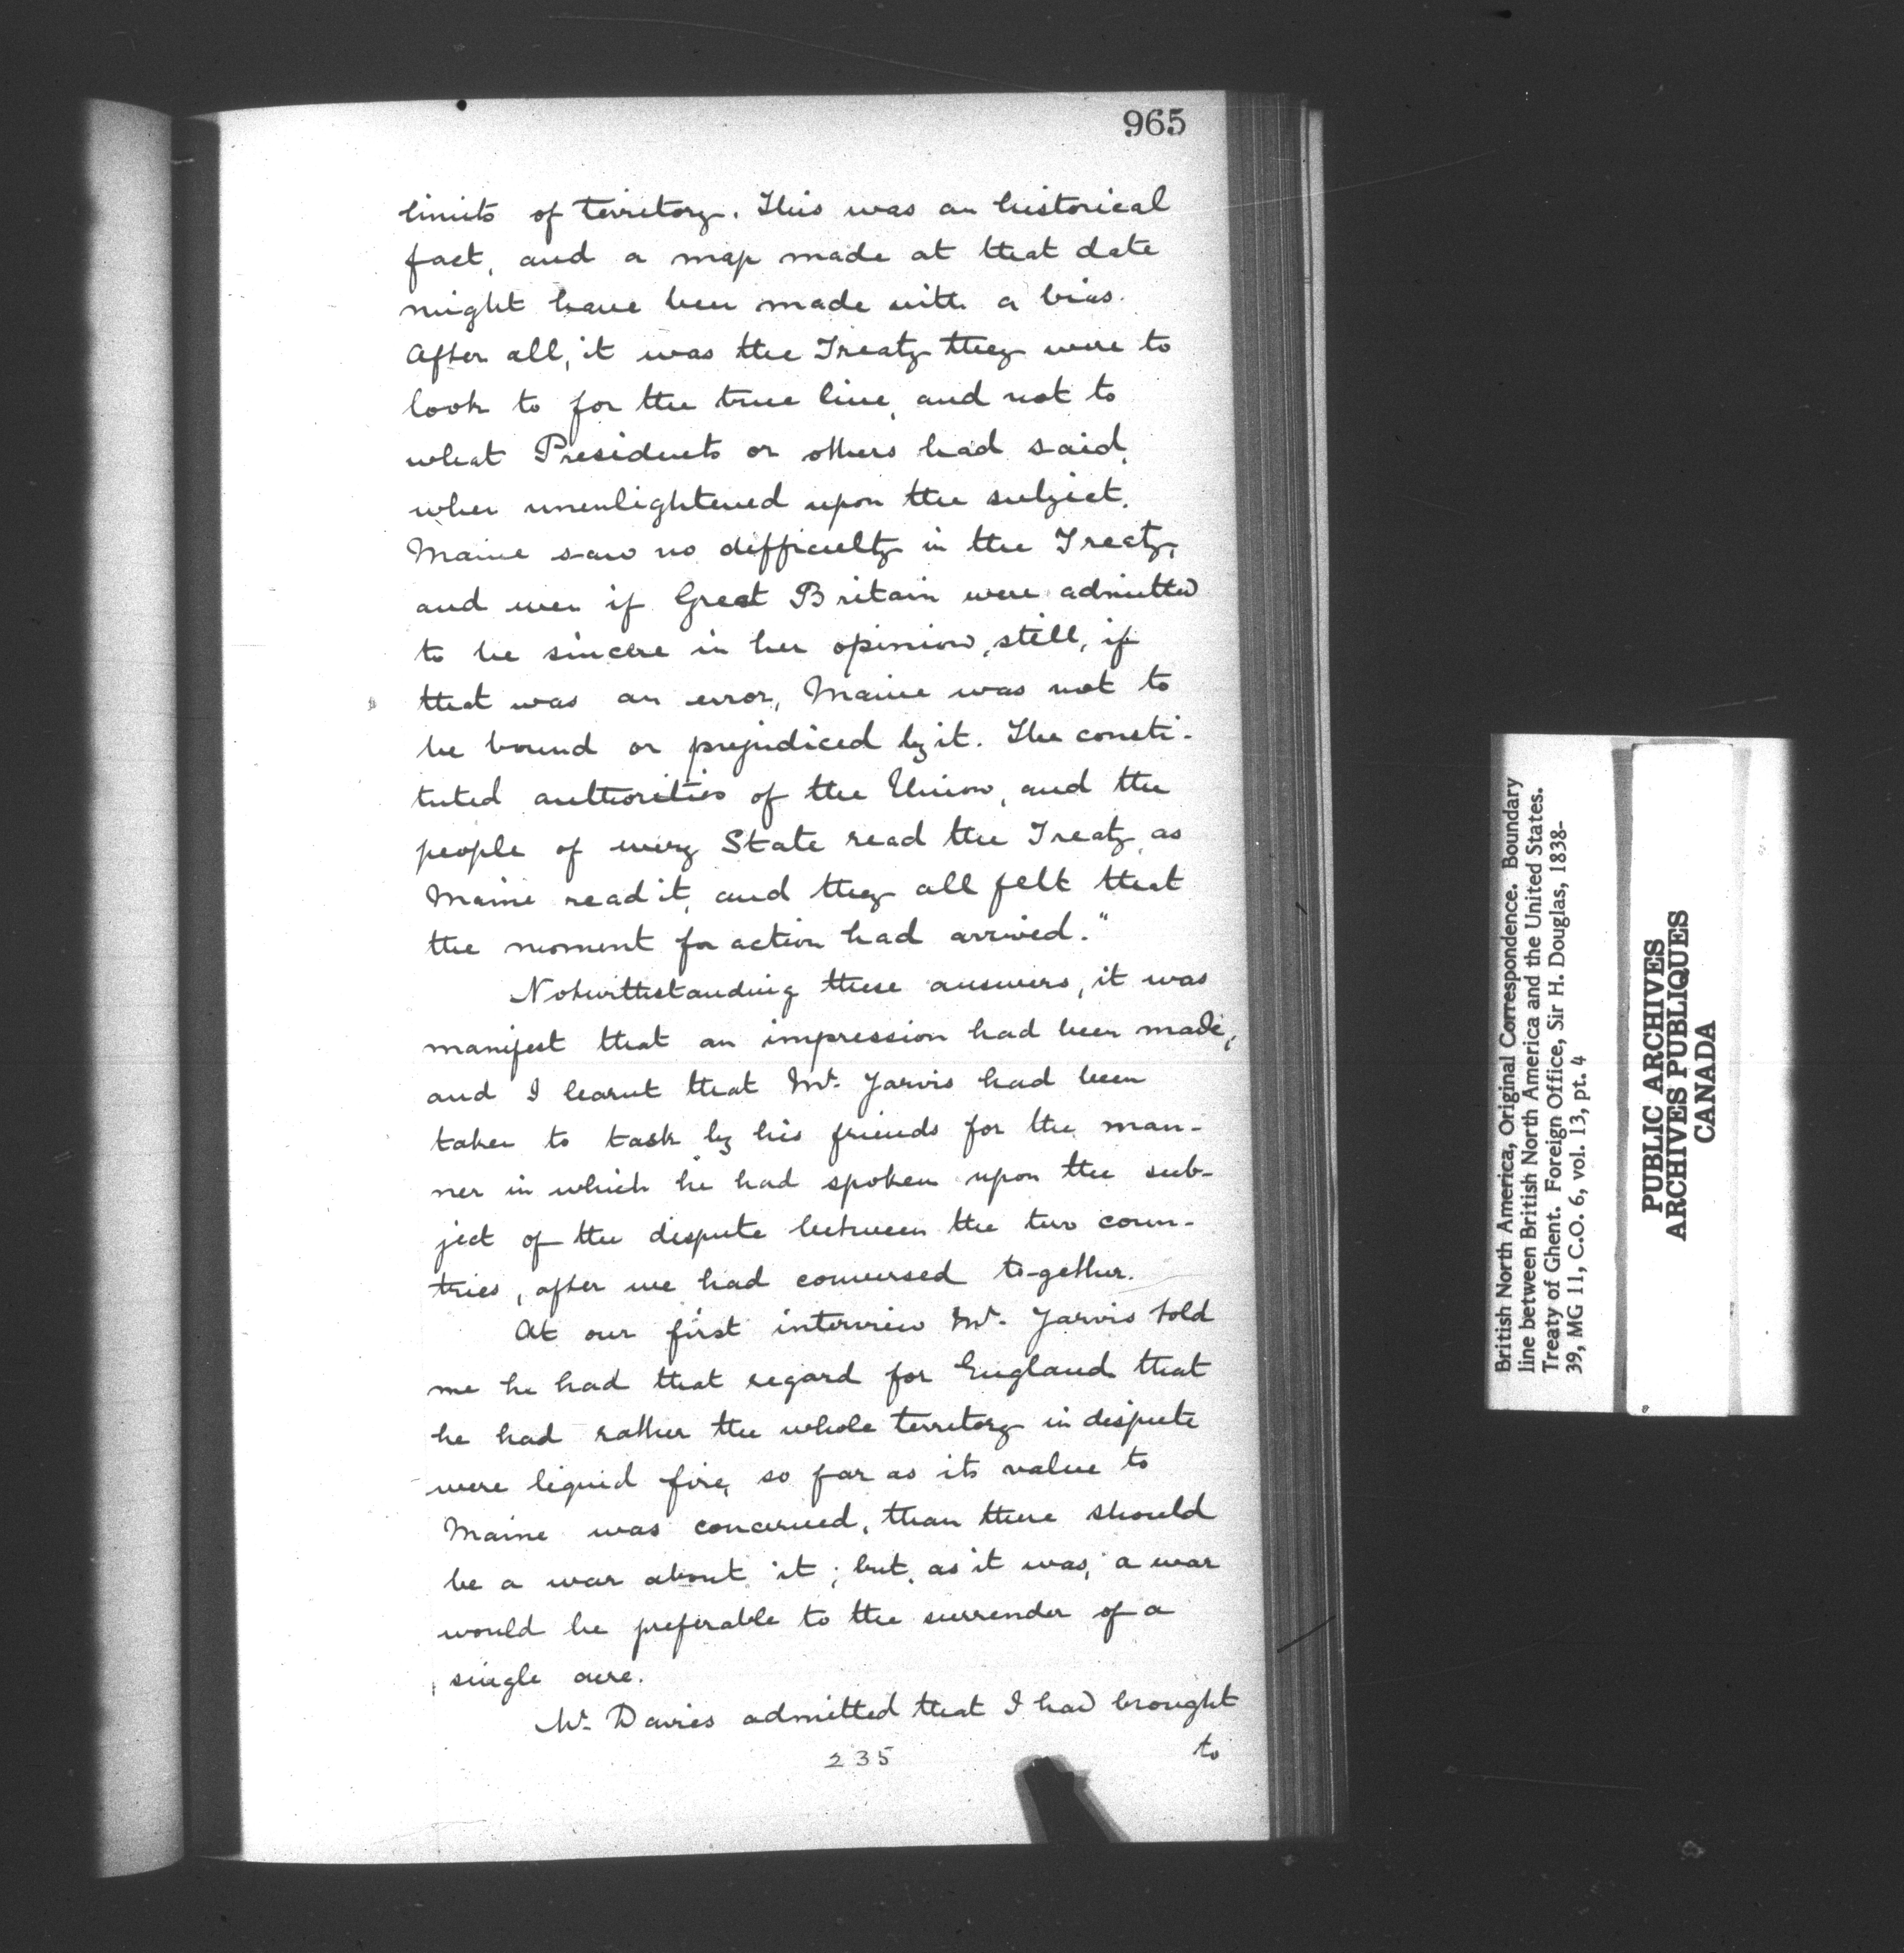 965
limits of territory. This was an historical
fact, and a map made at that date
might have been made with a bias.
After all, it was the Treaty they were to
look to for the true line, and not to
what Presidents or others had said,
when unenlightened upon the subject.
Maine saw no difficulty in the Treaty,
and even if Great Britain were admitted
to be sincere in her opinion, still, if
that was an error, Maine was not to
be bound or prejudiced by it. The consti-
tuted authorities of the Union, and the
people of every State read the Treaty, as
Maine read it, and they all felt that
the moment for action had arrived."
Notwithstanding these answers, it was
manifest that an impression had been made,
and I learnt that Mr. Jarvis had been
taken to task by his friends for the man-
ner in which he had spoken upon the sub-
ject of the dispute between the two coun-
tries, after we had conversed to-gether.
At our first interview Mr. Jarvis told
me he had that regard for England that
he had rather the whole territory in dispute
were liquid fire, so far as its value to
Maine was concerned, than there should
be a war about it; but, as it was, a war
would be preferable to the surrender of a
single acre.
Mr. Davies admitted that I had brought
to
235
British North America, Original Correspondence. Boundary
line between British North America and the United States.
Treaty of Ghent. Foreign Office, Sir H. Douglas, 1838-
39, MG 11, C.O. 6, vol. 13, pt. 4
PUBLIC ARCHIVES
ARCHIVES PUBLIQUES
CANADA